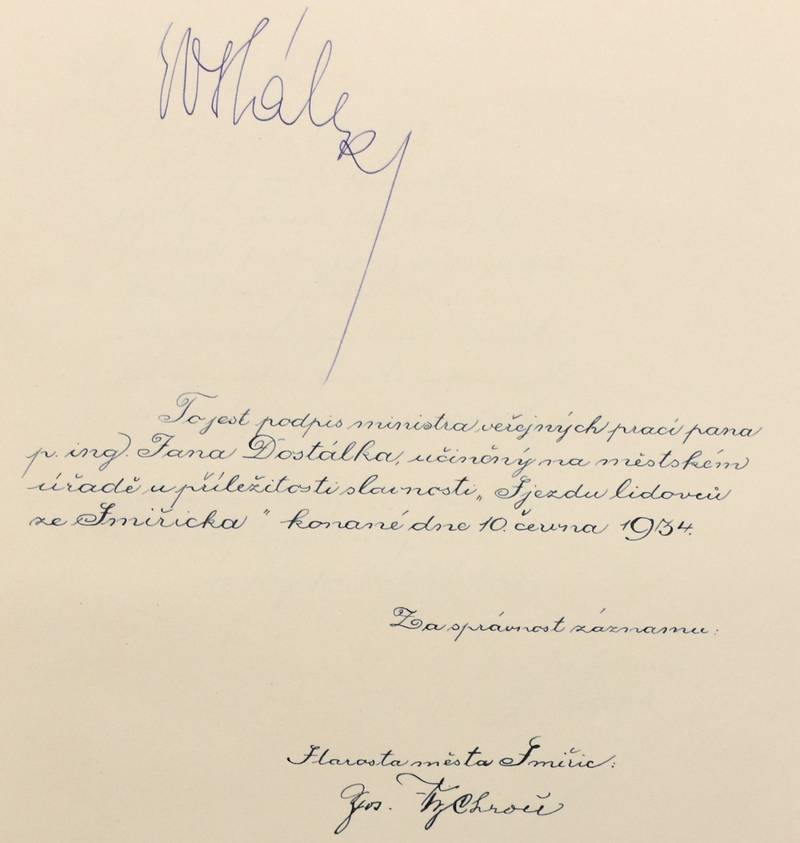 Dostálek
To jest podpis ministra veřejných prací pana
p. ing. Jana Dostálka, učiněný na městském
úřadě u příležitosti slavnosti „Sjezdu lidovců
ze Smiřicka" konané dne 10. června 1934.
Za správnost záznamu:
Starosta města Smiřic:
Jos.